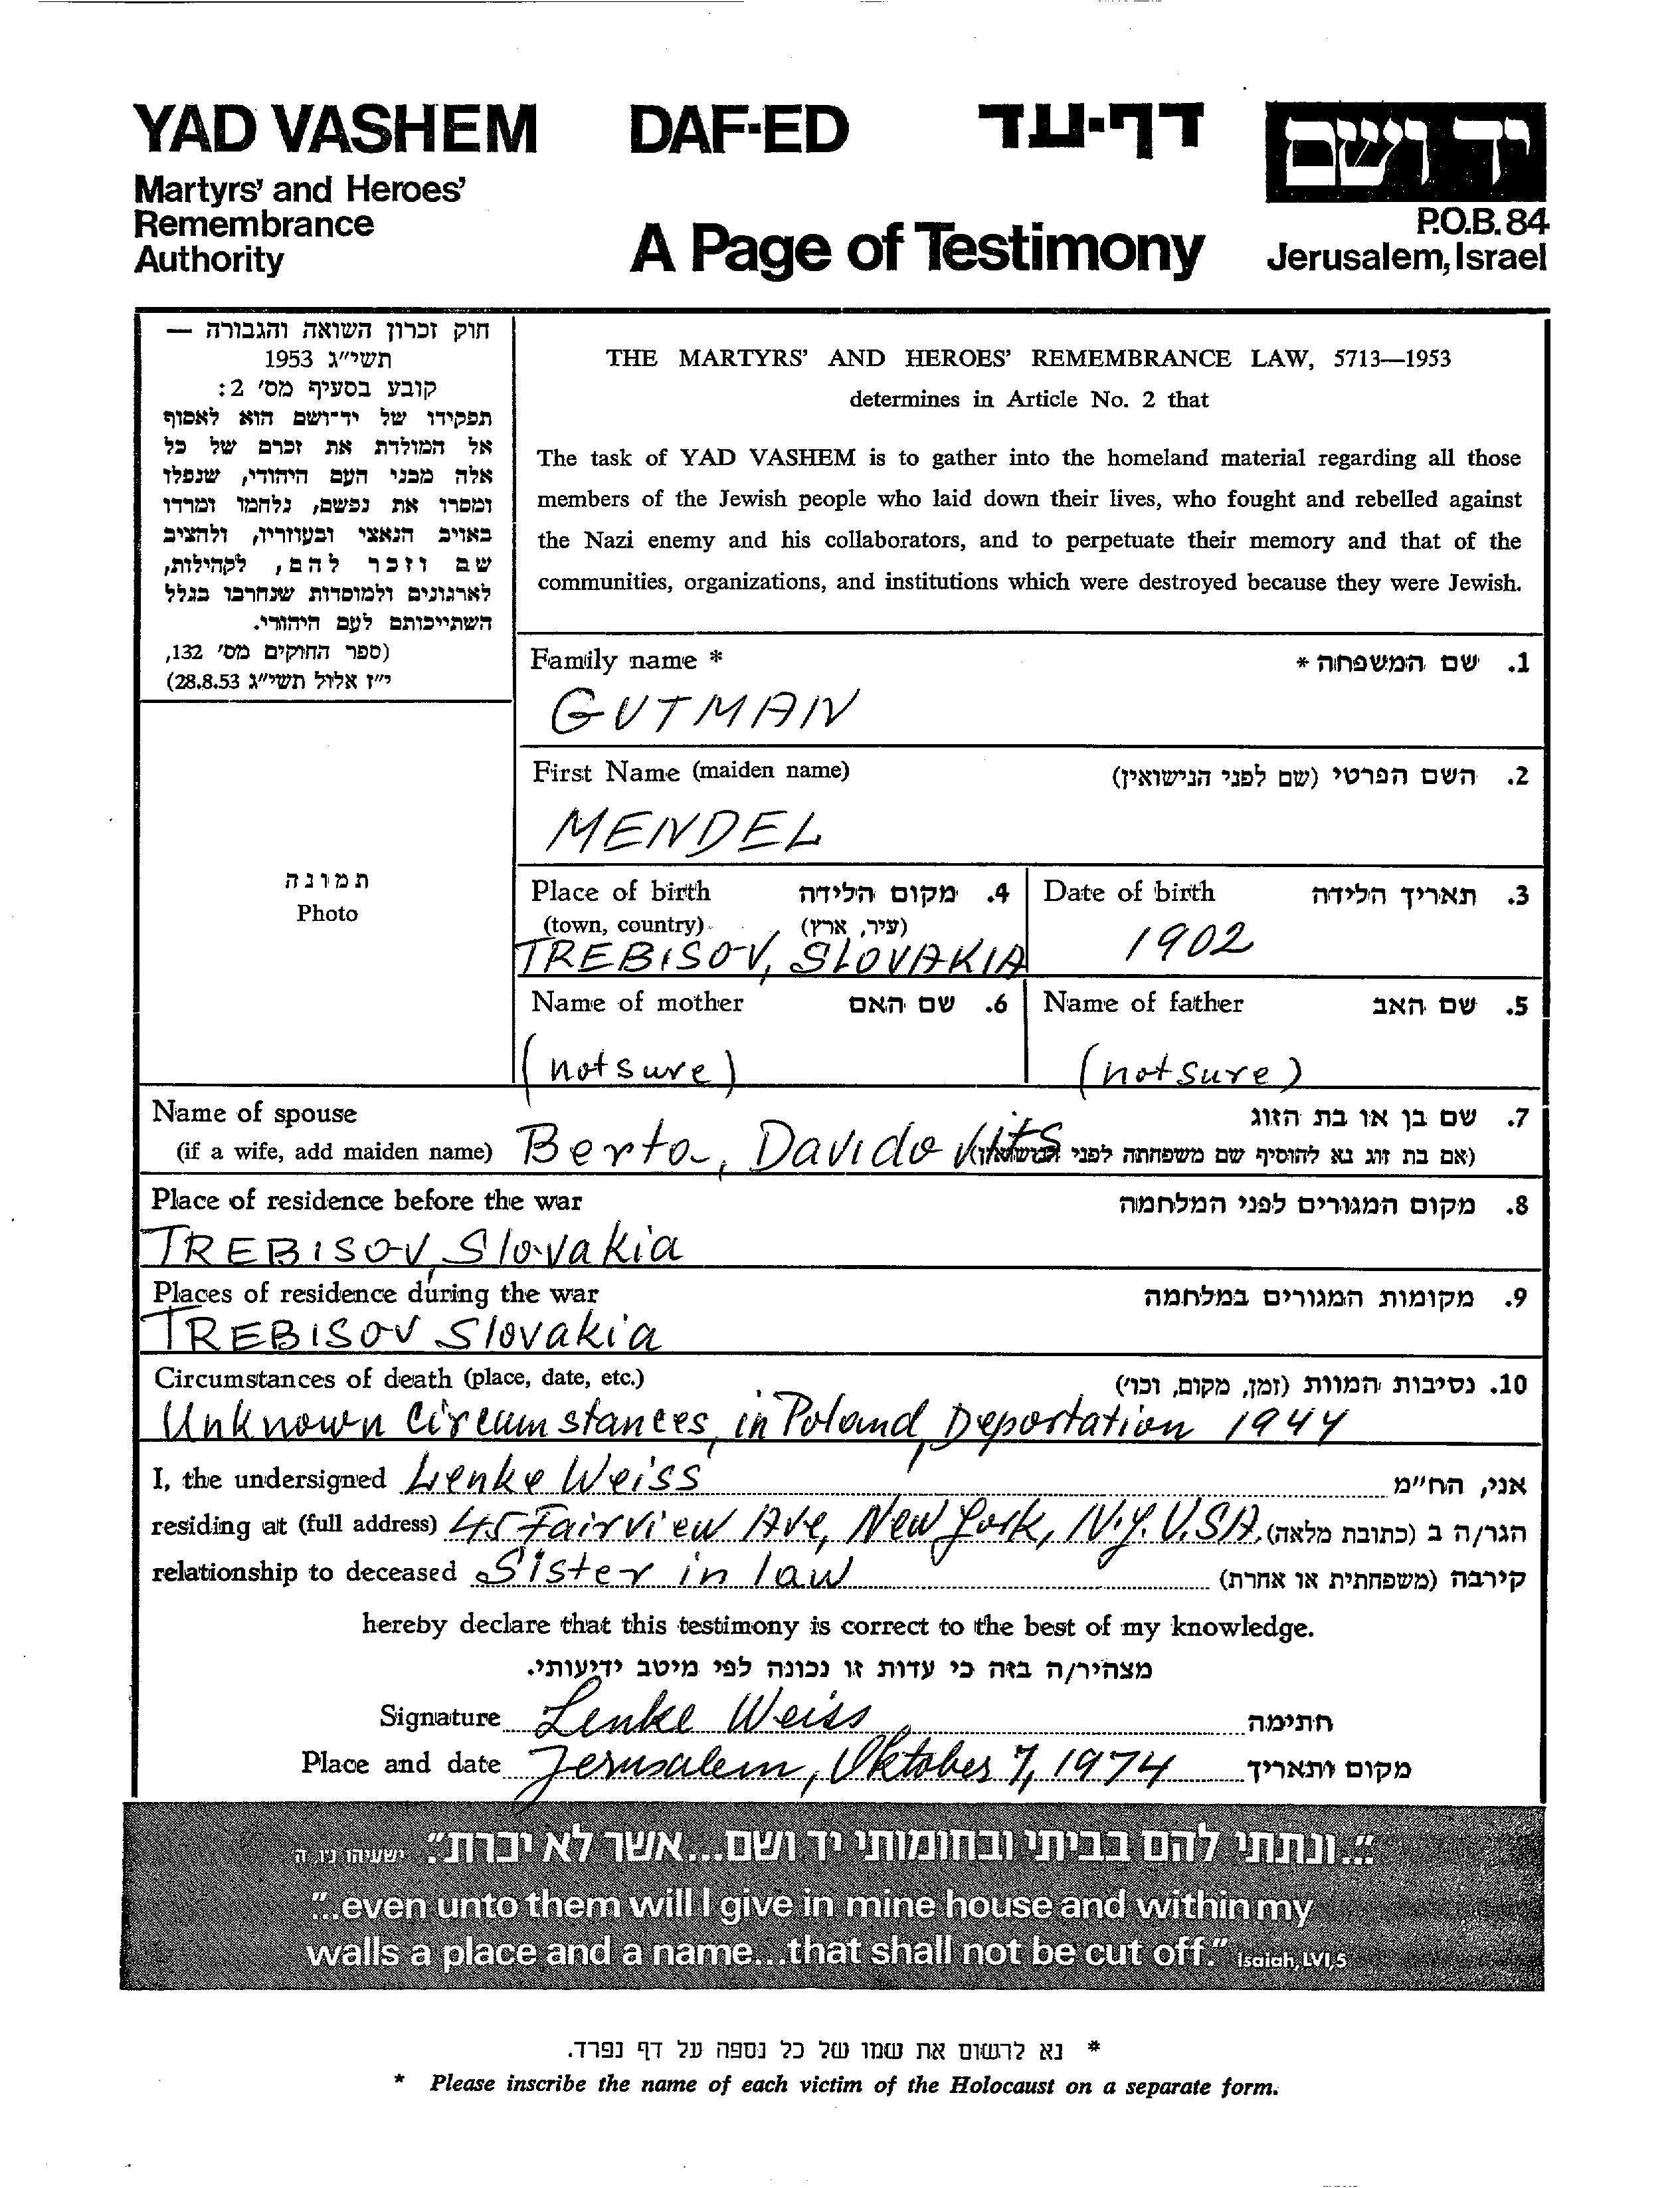 YAD VASHEM DAF-ED דף-עד יד ושם
Martyrs' and Heroes'
Remembrance
Authority
A Page of Testimony
P.O.B. 84
Jerusalem, Israel
חוק זכרון השואה והגבורה —
תשי״ג 1953
קובע בסעיף מס׳ 2:
תפקידו של יד־ושם הוא לאסוף
אל המולדת את זכרם של כל
אלה מבני העם היהודי, שנפלו
ומסרו את נפשם, נלחמו ומרדו
באויב הנאצי ובעוזריו, ולהציב
שם וזכר להם, לקהילות,
לארגונים ולמוסדות שנחרבו בגלל
השתייכותם לעם היהודי.
(ספר החוקים מס׳ 132,
י״ז אלול תשי״ג 28.8.53)
THE MARTYRS' AND HEROES' REMEMBRANCE LAW, 5713—1953
determines in Article No. 2 that
The task of YAD VASHEM is to gather into the homeland material regarding all those
members of the Jewish people who laid down their lives, who fought and rebelled against
the Nazi enemy and his collaborators, and to perpetuate their memory and that of the
communities, organizations, and institutions which were destroyed because they were Jewish.
Family name * 1. שם המשפחה *
GUTMAN
First Name (maiden name) 2. השם הפרטי (שם לפני הנישואין)
MENDEL
תמונה
Photo
Place of birth 4. מקום הלידה
(town, country) (עיר, ארץ)
TREBISOV, SLOVAKIA
Date of birth 3. תאריך הלידה
1902
Name of mother 6. שם האם
(not sure)
Name of father 5. שם האב
(not sure)
Name of spouse 7. שם בן או בת הזוג
(if a wife, add maiden name) Berta, Davidovits (אם בת זוג נא להוסיף שם משפחתה לפני הנישואין)
Place of residence before the war 8. מקום המגורים לפני המלחמה
TREBISOV, Slovakia
Places of residence during the war 9. מקומות המגורים במלחמה
TREBISOV Slovakia
Circumstances of death (place, date, etc.) 10. נסיבות המוות (זמן, מקום, וכו׳)
Unknown Circumstances, in Poland, Deportation 1944
I, the undersigned Lenke Weiss אני, הח״מ
residing at (full address) 45 Fairview Ave, New York, N.Y. U.S.A. הגר/ה ב (כתובת מלאה)
relationship to deceased Sister in law קירבה (משפחתית או אחרת)
hereby declare that this testimony is correct to the best of my knowledge.
מצהיר/ה בזה כי עדות זו נכונה לפי מיטב ידיעותי.
Signature Lenke Weiss חתימה
Place and date Jerusalem, Oktober 7, 1974 מקום ותאריך
"...ונתתי להם בביתי ובחומותי יד ושם...אשר לא יכרת". ישעיהו נ״ו, ה
"...even unto them will I give in mine house and within my
walls a place and a name...that shall not be cut off." Isaiah, LVI,5
* נא לרשום את שמו של כל נספה על דף נפרד.
* Please inscribe the name of each victim of the Holocaust on a separate form.